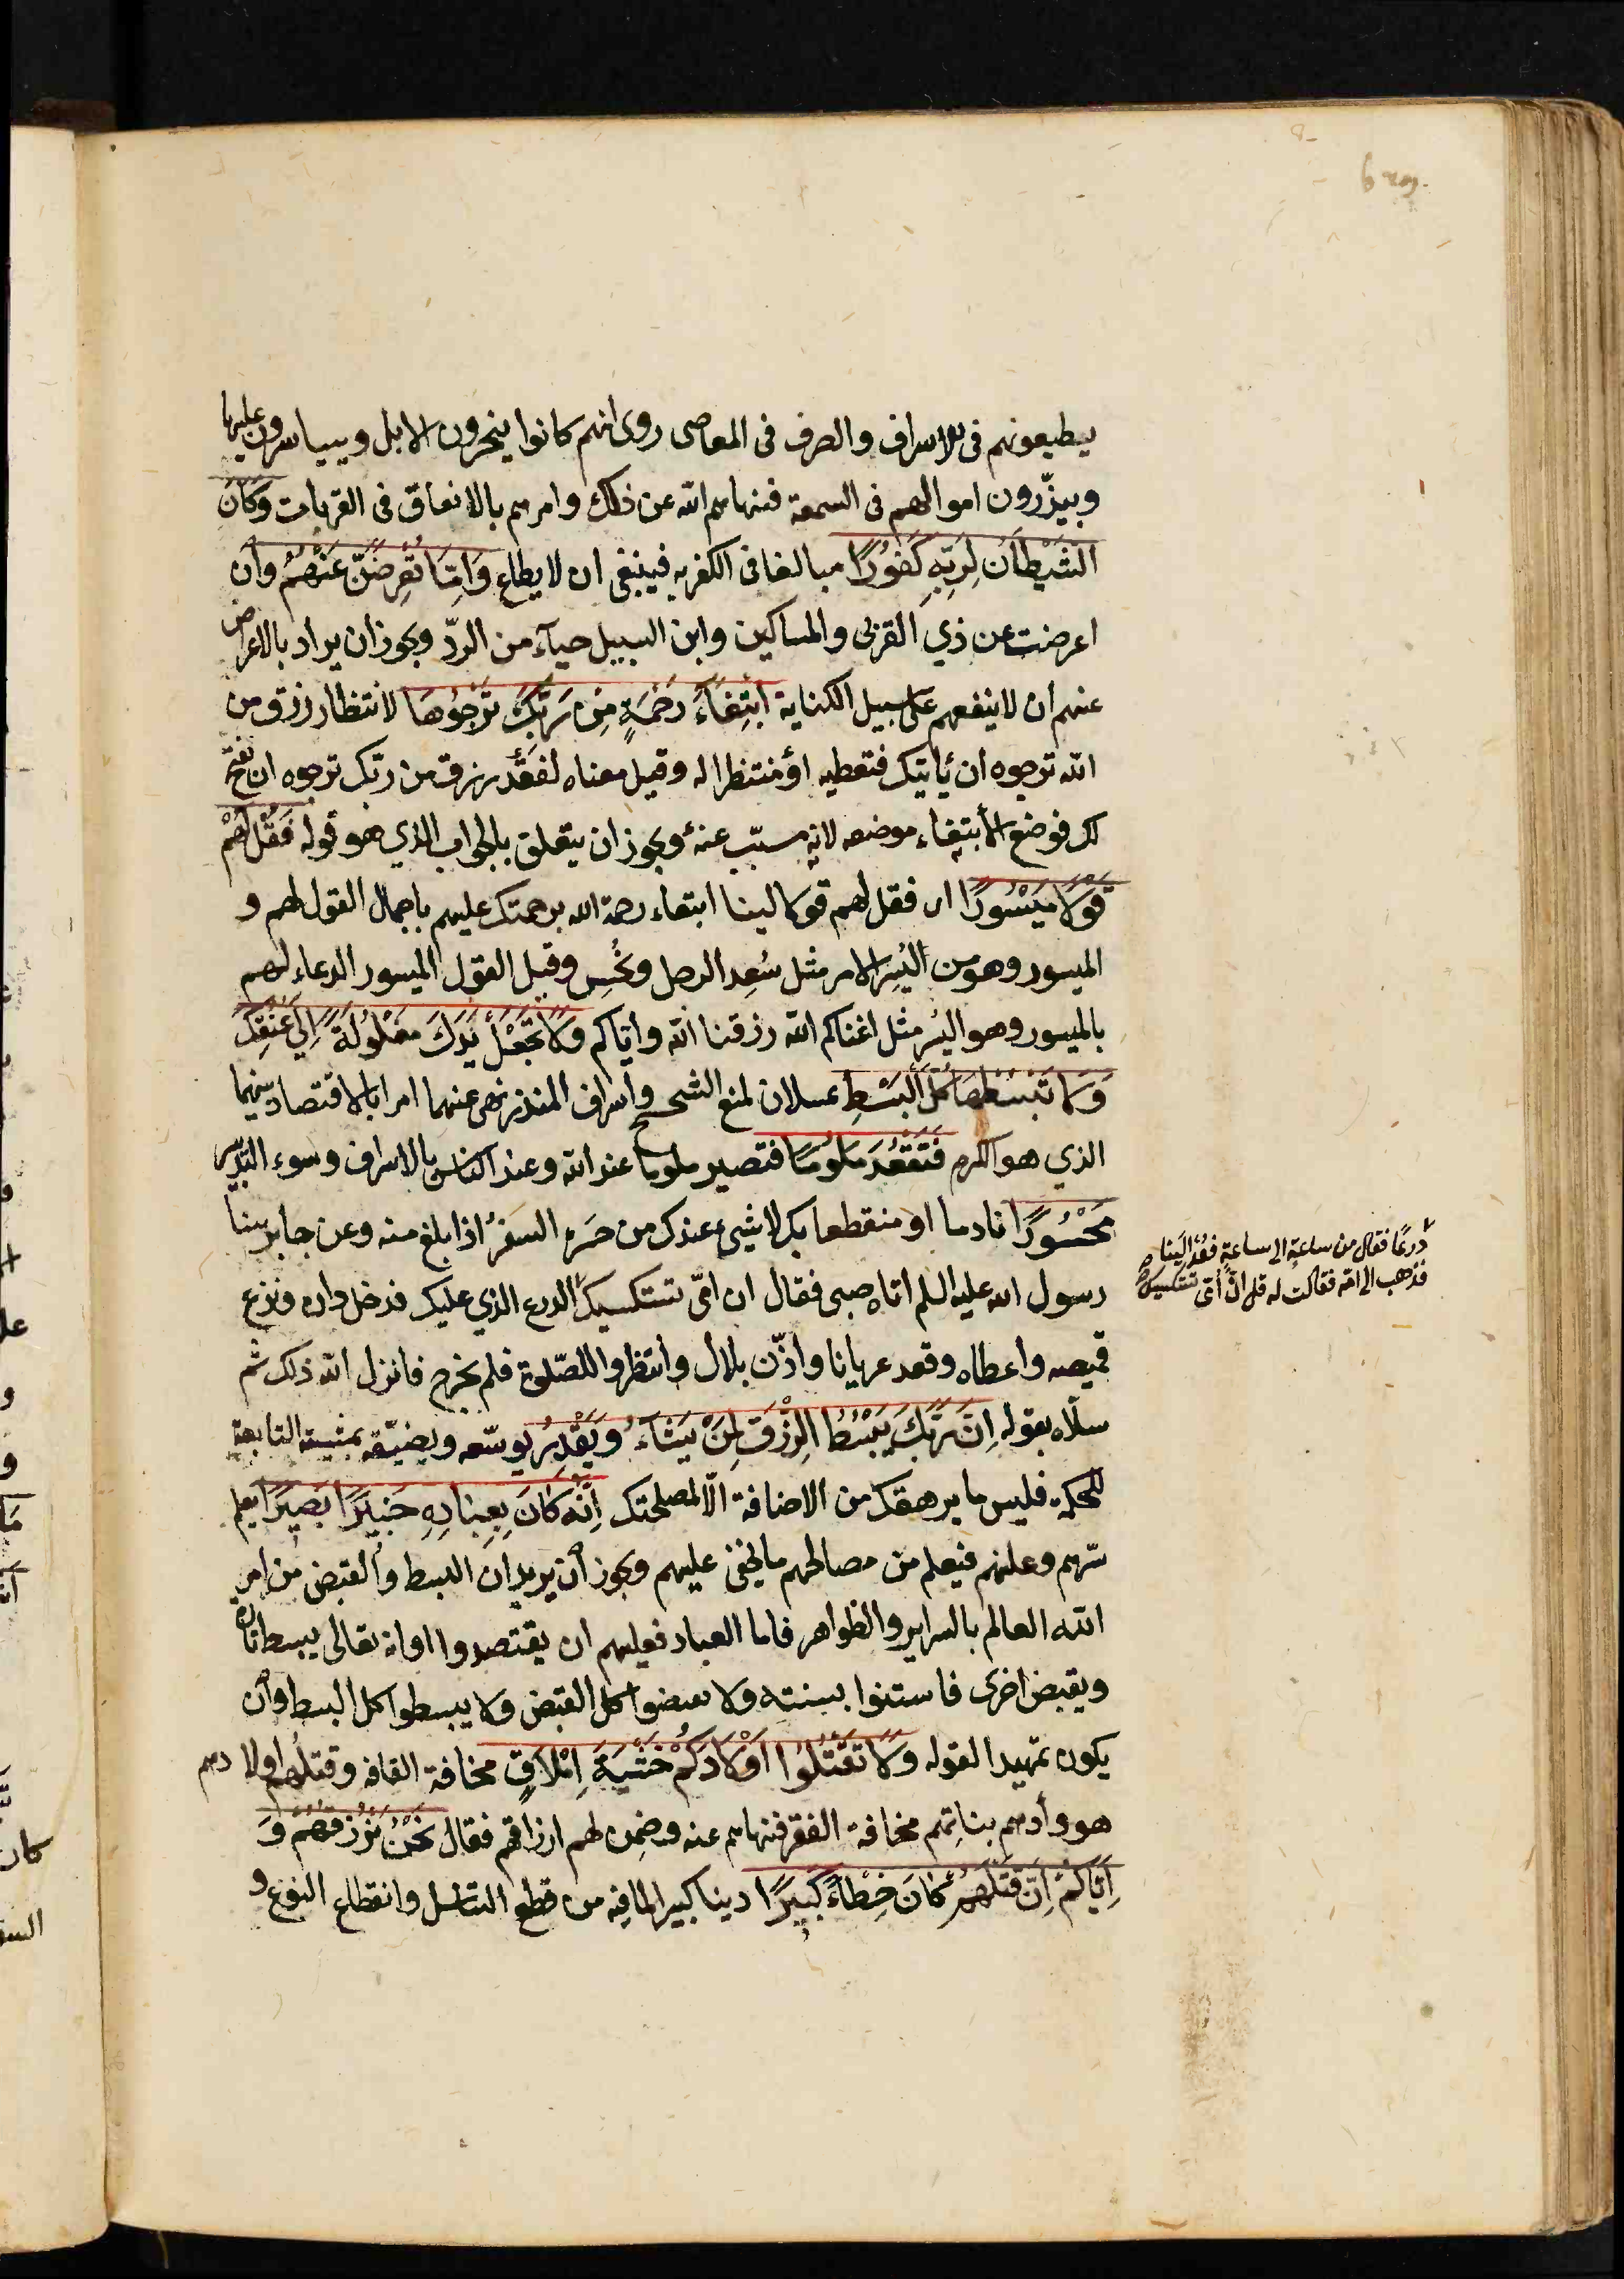 يطيعونهم فى الاسراف والصرف فى المعاصى روى انهم كانوا ينحرون الابل ويبياسرون عليها
ويبذّرون اموالهم فى السمعة فنهاهم الله عن ذلك وامرهم بالانفاق فى القربات وَكَانَ
الشَّيْطَانُ لِرَبِّهِ كَفُورًا مبالغا فى الكفر به فينبغى ان لا يطاع وَاِمَّا تُعْرِضَنَّ عَنْهُمُ وأن
اعرضت عن ذي القربى والمساكين وابن السبيل حيآء من الردّ ويجوز ان يراد بالاعراض
عنهم ان لا ينفعهم على سبيل الكناية ابْتِغَاءَ رَحْمَةٍ مِنْ رَبِّكَ تَرْجُوهَا لانتظار رزق من
الله ترجوه ان يأتيك فتعطيه او منتظرا له وقيل معناه لفقد رزق من ربّك ترجوه ان يفتح
لك فوضع الأبتغاء موضعه لانه مسبّب عنه ويجوز ان يتعلق بالجواب الذي هو قوله فَقُلْ لَهُمْ
قَوْلًا مَيْسُورًا اى فقل لهم قولا لينا ابتغاء رحمة الله برحمتك عليهم باجمال القول لهم و
الميسور وهو من اليُسِر الامر مثل سُعِد الرجل ونُحِس وقيل القول الميسور الدعاء لهم
بالميسور وهو اليُسْر مثل اغناكم الله رزقنا الله واِيّاكم وَلَا تَجْعَلْ يَدَكَ مَغْلُولَةً اِلَى عُنُقِكَ
وَلَا تَبْسُطْهَا كُلَّ الْبَسْطِ تمثيلان لمنع الشحيح واسراف المبذر نهى عنهما امرا بالاقتصاد بينهما
الذي هو الكرم فَتَقْعُدَ مَلُومًا فتصير ملوما عند الله وعند الناس بالاسراف وسوء التدبير
مَحْسُورًا نادما او منقطعا بك لا شيء عندك من حسره السفرُ اذا بلغ منه وعن جابر بينا
رسول الله عليه السلم اتاه صبى فقال ان امّى تستكسيك الدرع الذي عليك فدخل داره ونزع
قميصه واعطاه وقعد عريانا واذّن بلال وانتظروا للصّلوة فلم يخرج فانزل الله ذلك ثم
سلّاه بقوله اِنَّ رَبَّكَ يَبْسُطُ الرِّزْقَ لِمَنْ يَشَآءُ وَيَقْدِرُ يوسّعه ويضيّقه بمشيته التابعة
للحكمة فليس ما يرهقك من الاضافة الّا لمصلحتك اِنَّهُ كَانَ بِعِبَادِهِ خَبِيرًا بَصِيرًا يعلم
سرّهم وعلنهم فيعلم من مصالحهم ما يخفى عليهم ويجوز أن يريد ان البسط والقبض من امر
الله العالم بالسراير والظواهر فاما العباد فعليهم ان يقتصدوا او انه تعالى يبسط تارة
ويقبض اخرى فاستنوا بسنته ولا تقبضوا كل القبض ولا يبسطوا كل البسط وأن
يكون تمهيدا لقوله وَلَا تَقْتُلُوا اَوْلَادَكُمْ خَشْيَةَ اِمْلَاقٍ مخافة الفاقه وقتلُهم اولادهم
هو وأدهم بناتِهم مخافة الفقر فنهاهم عنه وضمن لهم ارزاقهم فقال نَحْنُ نَرْزُقُهُمْ وَ
اِيَّاكُمْ اِنَّ قَتْلَهُمْ كَانَ خِطْاءً كَبِيرًا ذنبا كبيرا لما فيه من قطع التناسل وانقطاع النوع و
درعًا فقال من ساعةٍ الى ساعةٍ فعُدْ الينا
فذهب الى امّه فقالت له قل انّ امّى تستكسيك